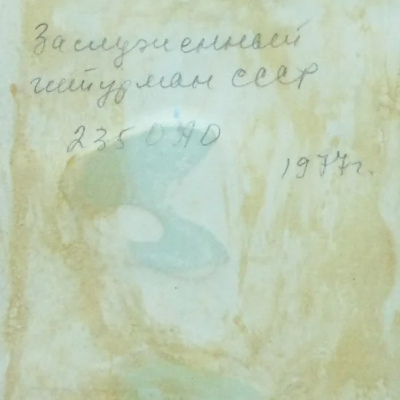 Заслуженный
штурман СССР
235 ОАО
1977г.